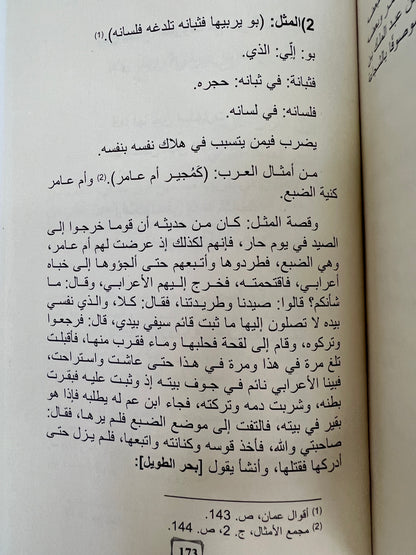 2)المثل: (بو يربيها فثبانه تلدغه فلسانه).(1)
بو: إلّي: الذي.
فثبانة: في ثبانه: حجره.
فلسانه: في لسانه.
يضرب فيمن يتسبب في هلاك نفسه بنفسه.
من أمثال العرب: (كَمُجير أم عامر).(2) وأم عامر
كنية الضبع.
وقصة المثل: كان من حديثه أن قوما خرجوا إلى
الصيد في يوم حار، فإنهم لكذلك إذ عرضت لهم أم عامر،
وهي الضبع، فطردوها وأتبعهم حتى ألجؤوها إلى خباء
أعرابي، فاقتحمته، فخرج إليهم الأعرابي، وقال: ما
شأنكم؟ قالوا: صيدنا وطريدتنا، فقال: كلا، والذي نفسي
بيده لا تصلون إليها ما ثبت قائم سيفي بيدي، قال: فرجعوا
وتركوه، وقام إلى لقحة فحلبها وماء فقرب منها، فأقبلت
تلغ مرة في هذا ومرة في هذا حتى عاشت واستراحت،
فبينا الأعرابي نائم في جوف بيته إذ وثبت عليه فبقرت
بطنه، وشربت دمه وتركته، فجاء ابن عم له يطلبه فإذا هو
بقير في بيته، فالتفت إلى موضع الضبع فلم يرها، فقال:
صاحبتي والله، فأخذ قوسه وكنانته واتبعها، فلم يزل حتى
أدركها فقتلها، وأنشأ يقول [بحر الطويل]:
(1) أقوال عمان، ص. 143.
(2) مجمع الأمثال، ج. 2، ص. 144.
173